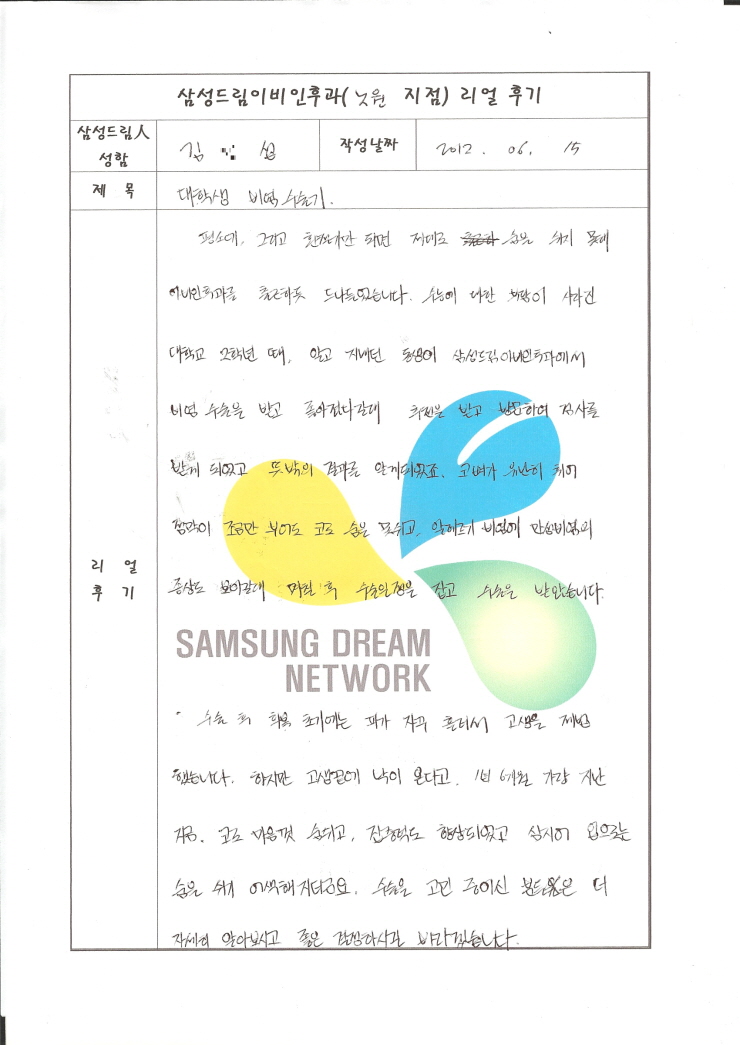 삼성드림이비인후과( 노원 지점) 리얼 후기
삼성드림人 성함
김 섭
작성날짜
2012. 06. 15
제 목
대학생 비염 수술기.
리 얼 후 기
평소에, 그리고 환절기만 되면 제대로 숨을 쉬지 못해
이비인후과를 출근하듯 드나들었습니다. 수능에 대한 부담이 사라진
대학교 2학년 때, 알고 지내던 동생이 삼성드림이비인후과에서
비염 수술을 받고 좋아졌다길래 추천을 받고 방문하여 검사를
받게 되었고 뜻밖의 결과를 알게되었죠. 코뼈가 유난히 휘어
점막이 조금만 부어도 코로 숨을 못쉬고, 알레르기 비염에 만성비염의
증상도 보이길래 며칠 후 수술일정을 잡고 수술을 받았습니다.
SAMSUNG DREAM
NETWORK
수술 후 회복 초기에는 피가 자꾸 흘러서 고생을 제법
했습니다. 하지만 고생끝에 낙이 온다고. 1년 6개월 가량 지난
지금. 코로 마음껏 숨쉬고, 집중력도 향상되었고 심지어 입으로는
숨을 쉬기 어색해지더군요. 수술을 고민 중이신 분들은 더
자세히 알아보시고 좋은 결정하시길 바라겠습니다.